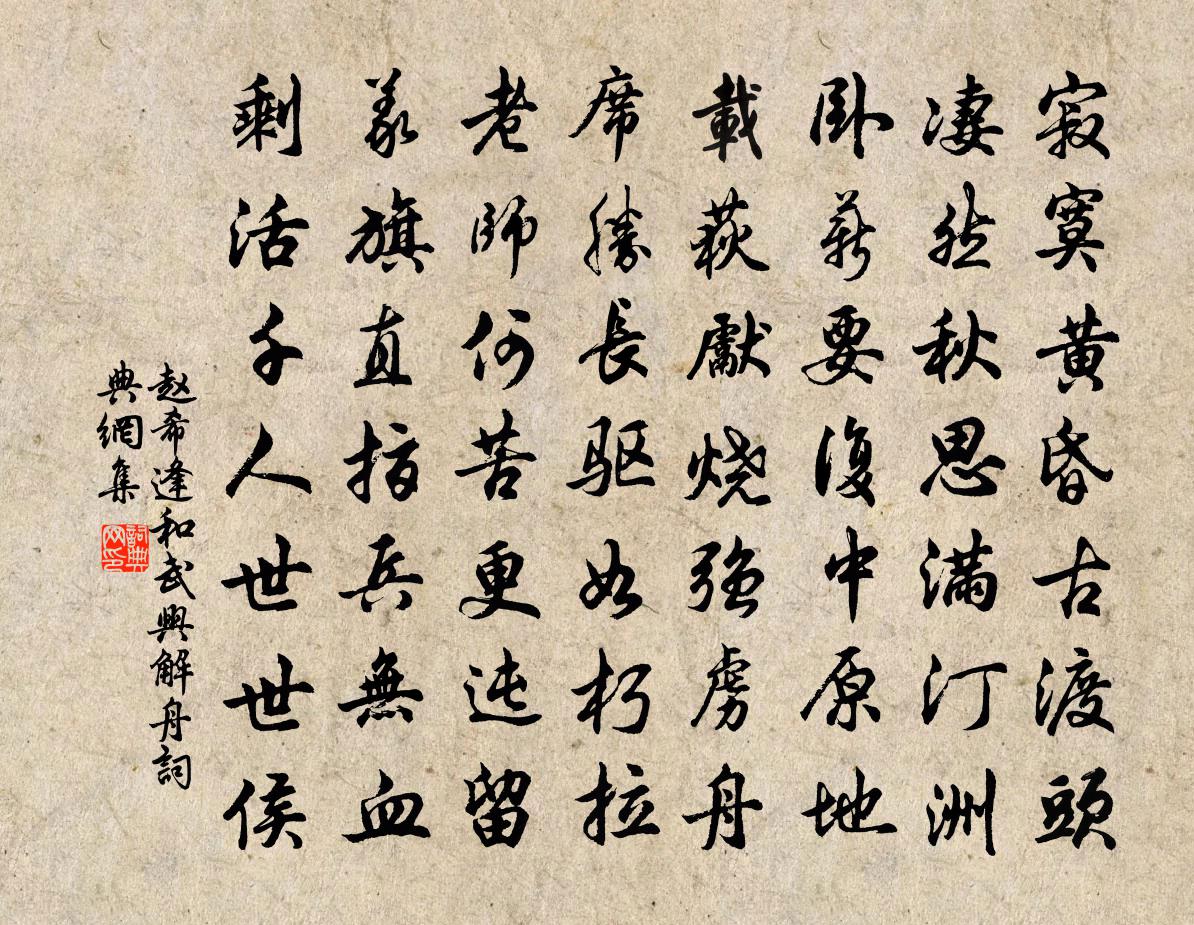 寂寞黃昏古渡頭
淒然秋思滿汀洲
臥薪要復中原地
載荻獻燒強虜舟
席勝長驅如朽拉
老師何苦更迍留
義旗直指兵無血
剩活千人世世侯
赵希逢和武興解舟詞
典網集
詞典網印